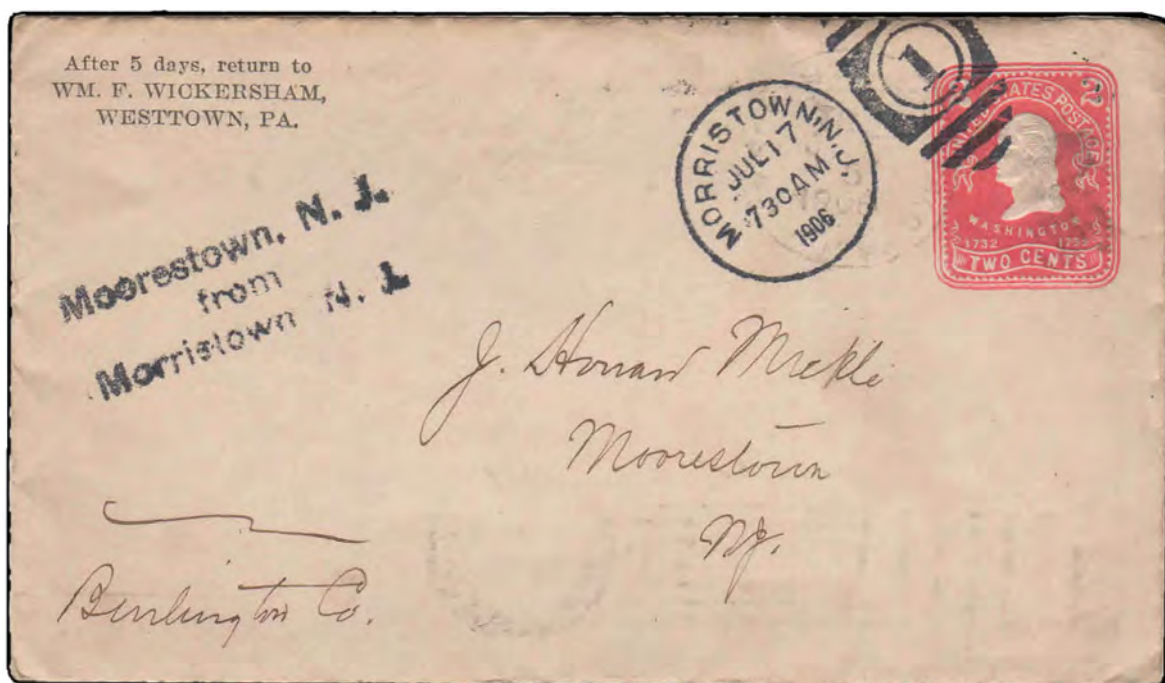 After 5 days, return to
WM. F. WICKERSHAM,
WESTTOWN, PA.
MORRISTOWN, N.J.
JUL 17
730AM
1906
1
2 2
UNITED STATES POSTAGE
WASHINGTON
1732 1799
TWO CENTS
Moorestown, N. J.
from
Morristown N. J.
J. Howard Mickle
Moorestown
NJ.
Burlington Co.